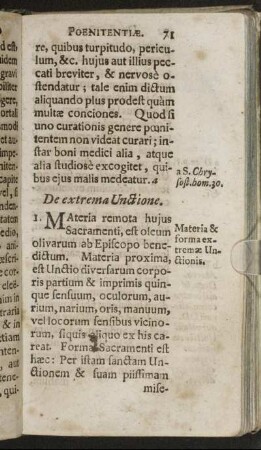 POENITENTIÆ. 71
re, quibus turpitudo, pericu-
lum, &c. hujus aut illius pec-
cati breviter, & nervosè o-
stendatur; tale enim dictum
aliquando plus prodest quàm
multæ conciones. Quod si
uno curationis genere pœni-
tentem non videat curari; in-
star boni medici alia, atque
alia studiosè excogitet, qui-
bus ejus malis medeatur. a
a S. Chry-
sost. hom. 30.
De extrema Unctione.
1. MAteria remota hujus
Sacramenti, est oleum
olivarum ab Episcopo bene-
dictum. Materia proxima,
est Unctio diversarum corpo-
ris partium & imprimis quin-
que sensuum, oculorum, au-
rium, narium, oris, manuum,
vel locorum sensibus vicino-
rum, siquis aliquo ex his ca-
reat. Forma Sacramenti est
hæc: Per istam sanctam Un-
ctionem & suam piissimam
mise-
Materia &
forma ex-
tremæ Un-
ctionis.